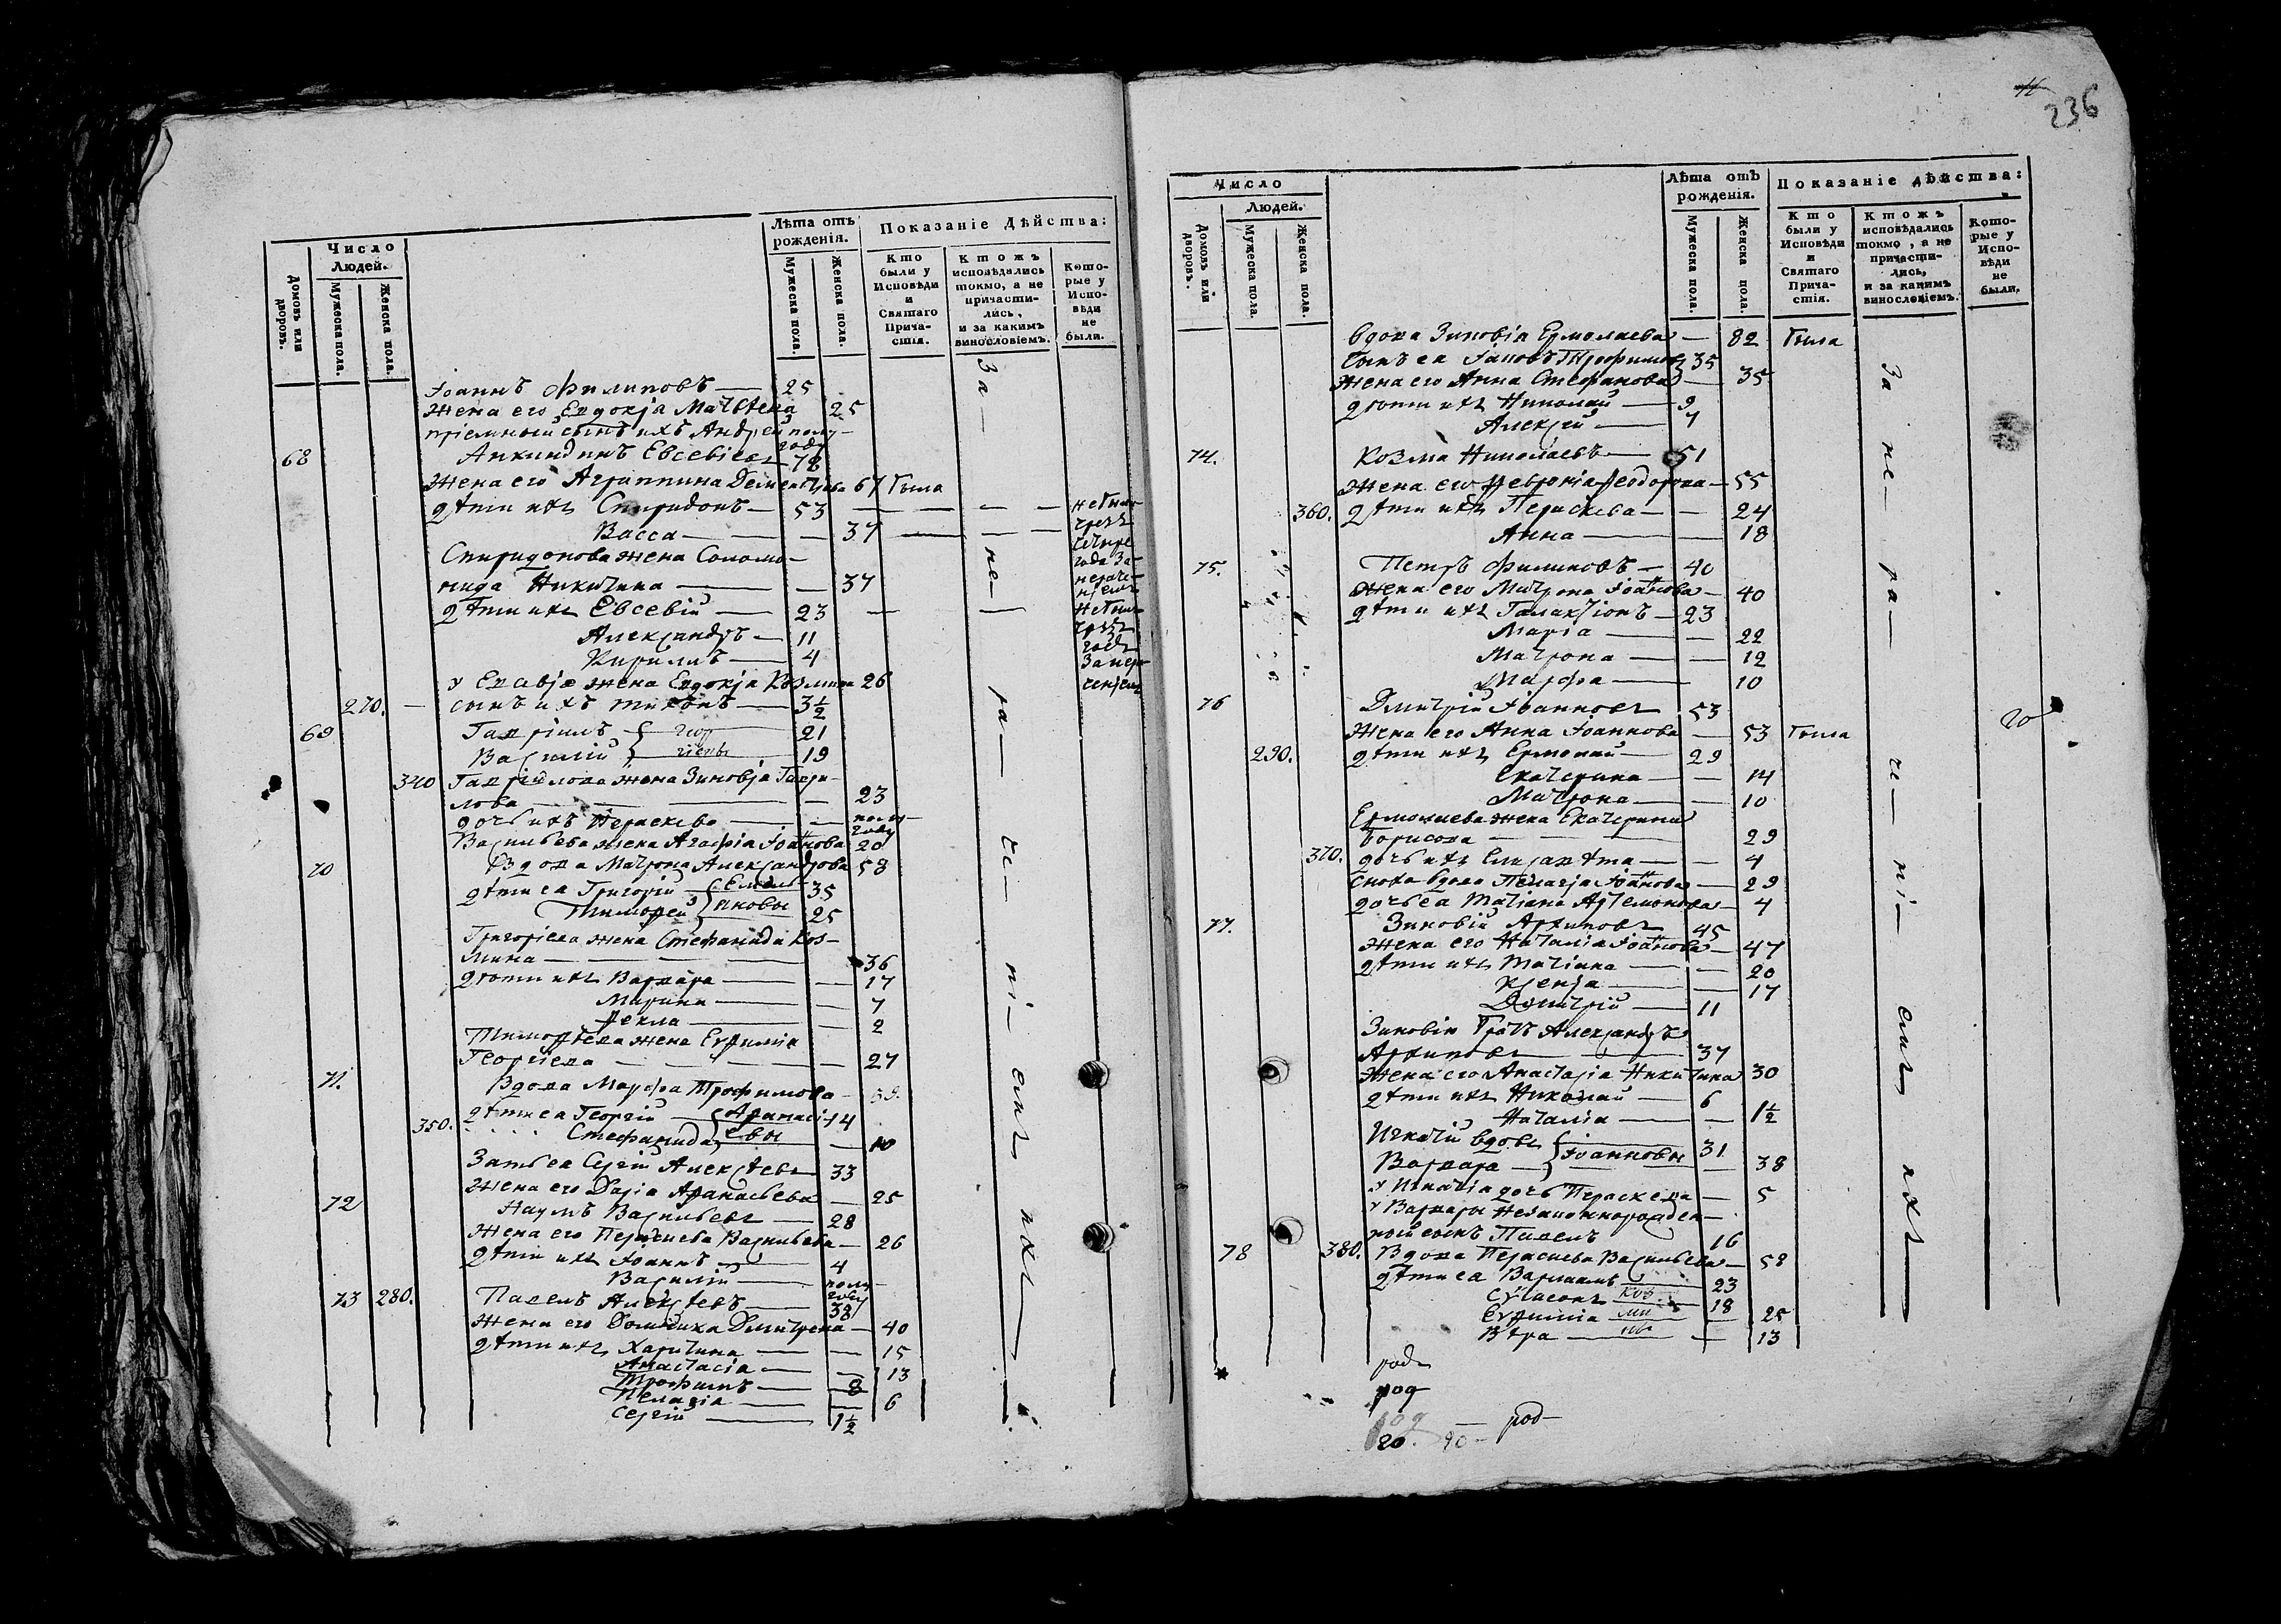 Число
Людей.
Домовъ или дворовъ.
Мужеска пола.
Женска пола.
Лѣта отъ рожденія.
Мужеска пола.
Женска пола.
Показаніе Дѣйства:
Кто были у Исповѣди и Святаго Причастія.
Ктожъ исповѣдались токмо, а не причастились, и за какимъ винословіемъ.
Которые у Исповѣди не были.
За не ра че ні емъ ихъ
Іоаннъ Филиповъ — 25
Жена его Евдокја Матвѣева 25
пріемный сынъ ихъ Андрей полу году
68 Анкиндинъ Евсевіевъ 78
Жена его Агриппина Дементьева 67 была
дѣти ихъ Спиридонъ — 53
Васса — 37
Спиридонова жена Соломо-
нида Никитина — 37
не были чрезъ четыре года за нераченіемъ
дѣти ихъ Евсевій — 23
не были чрезъ годъ за нераченіемъ
Александръ — 11
Кирилъ — 4
у Евсевія жена Евдокја Козмина 26
270. сынъ ихъ Тихонъ — 3½
69 Гавріилъ 21
Василій 19
Георгіевы
340 Гавріилова жена Зиновја Гаври-
лова — 23
дочь ихъ Параскева — полу году
Васильева жена Агафіа Іоаннова 20
70 Вдова Матрона Александрова 58
дѣти еа Григорій 35
Тимофей 25
Григоріева жена Стефанида Коз-
мина — 36
дѣти ихъ Варвара — 17
Марина — 7
Фекла — 2
Тимофѣева жена Евфиміа
Георгіева — 27
71. Вдова Марфа Трофимова — 39.
дѣти еа Георгій 14
350. Стефанида 10
Афанасіевы
Зать еа Сергій Алексѣевъ 33
Жена его Даріа Афанасьева — 25
72 Наумъ Васильевъ — 28
Жена его Параскева Васильева — 26
дѣти ихъ Іоаннъ — 4
Василій — полу году
73 280. Павелъ Алексѣевъ — 38
Жена его Домника Дмитрева — 40
дѣти ихъ Харитина — 15
Анастасіа — 13
Трофимъ — 8
Пелагіа — 6
Сергій — 1½
236
Число
Людей.
Домовъ или дворовъ.
Мужеска пола.
Женска пола.
Лѣта отъ рожденія.
Мужеска пола.
Женска пола.
Показаніе дѣйства:
Кто были у Исповѣди и Святаго Причастія.
Ктожъ исповѣдались токмо, а не причастились, и за какимъ винословіемъ.
Которые у Исповѣди не были.
За не ра че ні емъ ихъ
вдова Зиновіа Ермолаева — 82 была
сынъ еа Іаковъ Трофимовъ 35
Жена его Анна Стефанова — 35
дѣти ихъ Николай — 9
Алексій — 7
74. Козма Николаевъ — 51
Жена его Февроніа Феодорова — 55
360. дѣти ихъ Параскева — 24
Анна — 18
75. Петръ Филиповъ — 40
Жена его Матрона Іоаннова — 40
дѣти ихъ Галактіонъ — 23
Маріа — 22
Матрона — 12
Марфа — 10
76 Дмитрій Іоанновъ 53
Жена его Анна Іоаннова — 53 была
20
290. дѣти ихъ Ермолай — 29
Екатерина — 14
Матрона — 10
Ермолаева жена Екатерина
Борисова — 29
370. дочь ихъ Елисавѣта — 4
сноха вдова Пелагіа Іоаннова — 29
дочь еа Татіана Артемонова — 4
77. Зиновій Архиповъ 45
Жена его Наталіа Іоаннова — 47
дѣти ихъ Татіана — 20
Ксеніа — 17
Дмитрій — 11
Зиновію братъ Александръ
Архиповъ — 37
Жена его Анастасіа Никитина 30
дѣти ихъ Николай — 6
Наталіа — 1½
Игнатій вдовъ 31
Варвара — 38
Іоанновы
у Игнатіа дочь Параскева — 5
у Варвары незаконнорожден-
ный сынъ Павелъ 16
78 380. Вдова Параскева Васильева — 58
дѣти еа Варлаамъ 23
18
Евфиміа 25
Вѣра 13
Козмины
род
род
20. 20 — род —